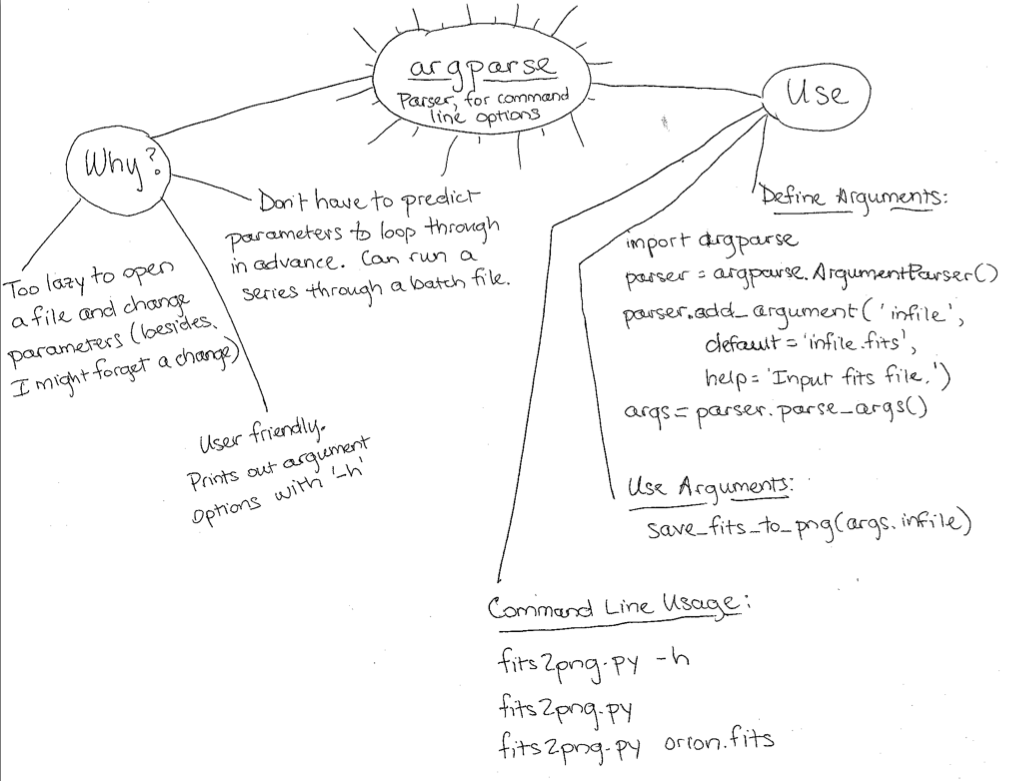 argparse
Parser, for command
line options
Why?
Too lazy to open
a file and change
parameters (besides,
I might forget a change)
User friendly.
Prints out argument
options with '-h'
Don't have to predict
parameters to loop through
in advance. Can run a
series through a batch file.
Use
Define Arguments:
import argparse
parser = argparse.ArgumentParser()
parser.add_argument('infile',
default='infile.fits',
help='Input fits file.')
args=parser.parse_args()
Use Arguments:
save_fits_to_png(args.infile)
Command Line Usage:
fits2png.py -h
fits2png.py
fits2png.py orion.fits